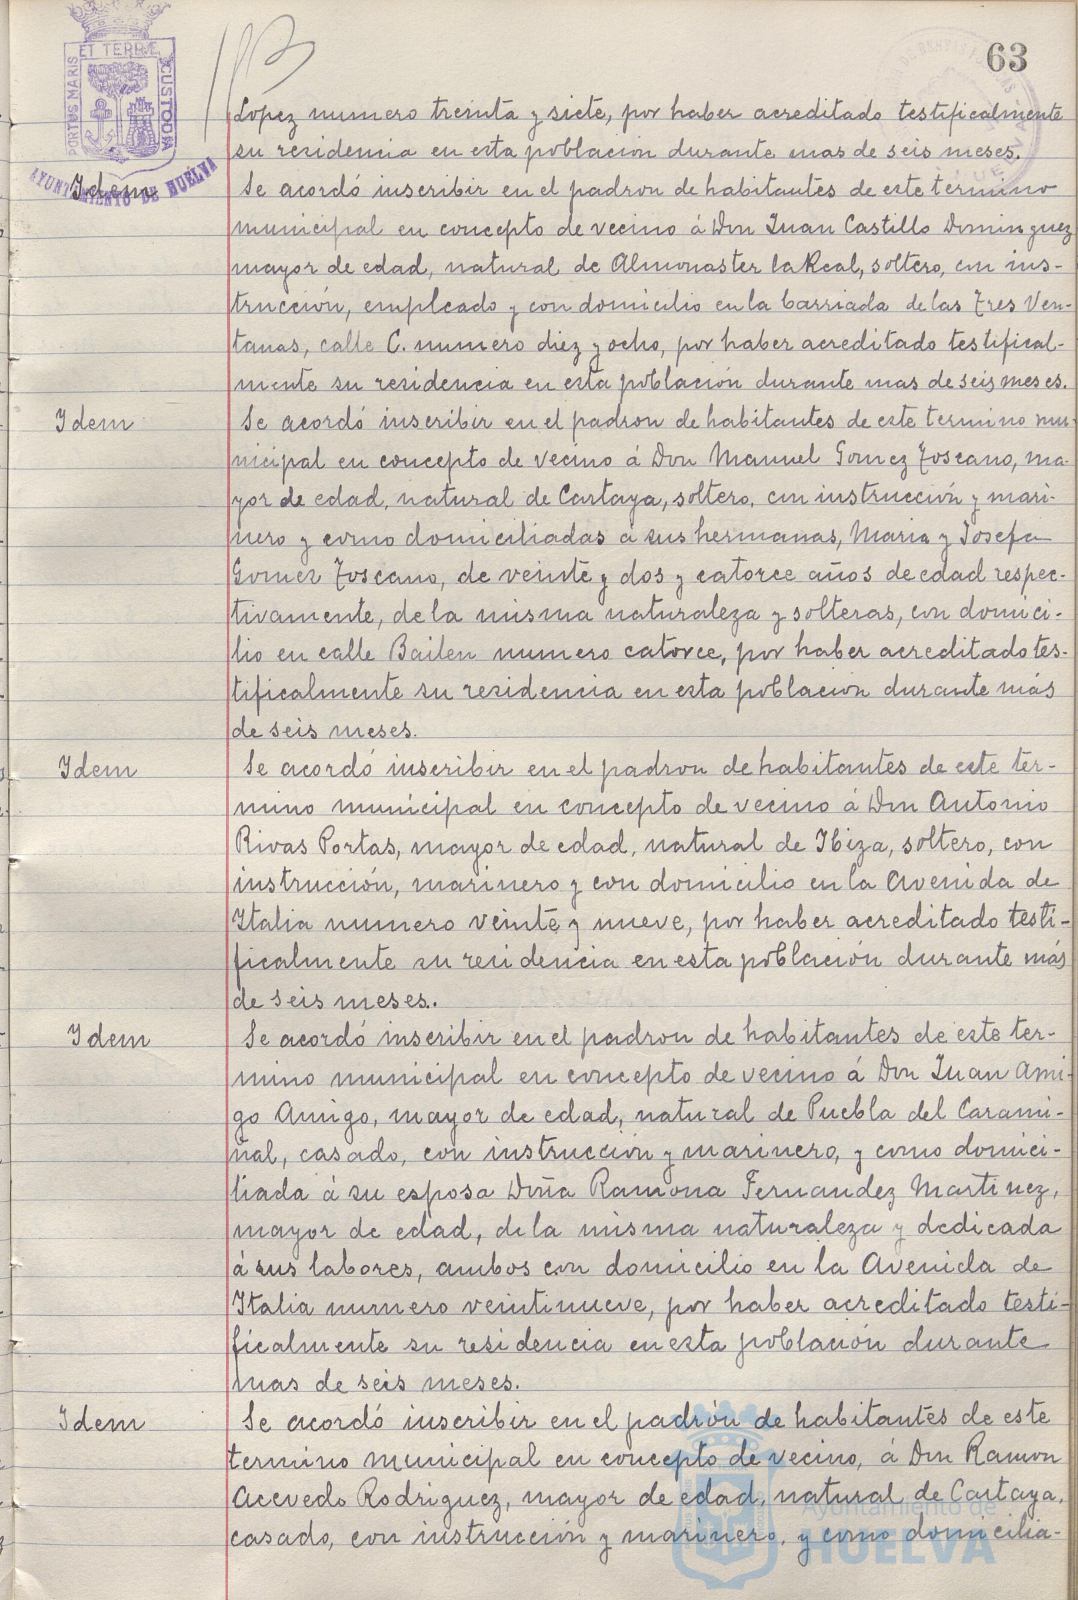 63
PORTUS MARIS ET TERRÆ CUSTODIA
AYUNTAMIENTO DE HUELVA
Lopez numero treinta y siete, por haber acreditado testificalmente
su residencia en esta poblacion durante mas de seis meses.
Idem
Se acordó inscribir en el padron de habitantes de este termino
municipal en concepto de vecino á Don Juan Castillo Dominguez
mayor de edad, natural de Almonaster la Real, soltero, con ins-
trucción, empleado y con domicilio en la barriada de las Tres Ven-
tanas, calle C. numero diez y ocho, por haber acreditado testifical-
mente su residencia en esta población durante mas de seis meses.
Idem
Se acordó inscribir en el padron de habitantes de este termino mu-
nicipal en concepto de vecino á Don Manuel Gomez Toscano, ma-
yor de edad, natural de Cartaya, soltero, con instrucción y mari-
nero y como domiciliadas á sus hermanas, Maria y Josefa
Gomez Toscano, de veinte y dos y catorce años de edad respec-
tivamente, de la misma naturaleza y solteras, con domici-
lio en calle Bailen numero catorce, por haber acreditado tes-
tificalmente su residencia en esta poblacion durante más
de seis meses.
Idem
Se acordó inscribir en el padron de habitantes de este ter-
mino municipal en concepto de vecino á Don Antonio
Rivas Portas, mayor de edad, natural de Ibiza, soltero, con
instrucción, marinero y con domicilio en la Avenida de
Italia numero veinte y nueve, por haber acreditado testi-
ficalmente su residencia en esta población durante más
de seis meses.
Idem
Se acordó inscribir en el padron de habitantes de este ter-
mino municipal en concepto de vecino á Don Juan Ami-
go Amigo, mayor de edad, natural de Puebla del Carami-
ñal, casado, con instrucción y marinero, y como domici-
liada á su esposa Doña Ramona Fernandez Martinez,
mayor de edad, de la misma naturaleza y dedicada
á sus labores, ambos con domicilio en la Avenida de
Italia numero veintinueve, por haber acreditado testi-
ficalmente su residencia en esta población durante
mas de seis meses.
Idem
Se acordó inscribir en el padrón de habitantes de este
termino municipal en concepto de vecino, á Don Ramon
Acevedo Rodriguez, mayor de edad, natural de Cartaya,
casado, con instrucción y marinero, y como domicilia-
Ayuntamiento de
HUELVA